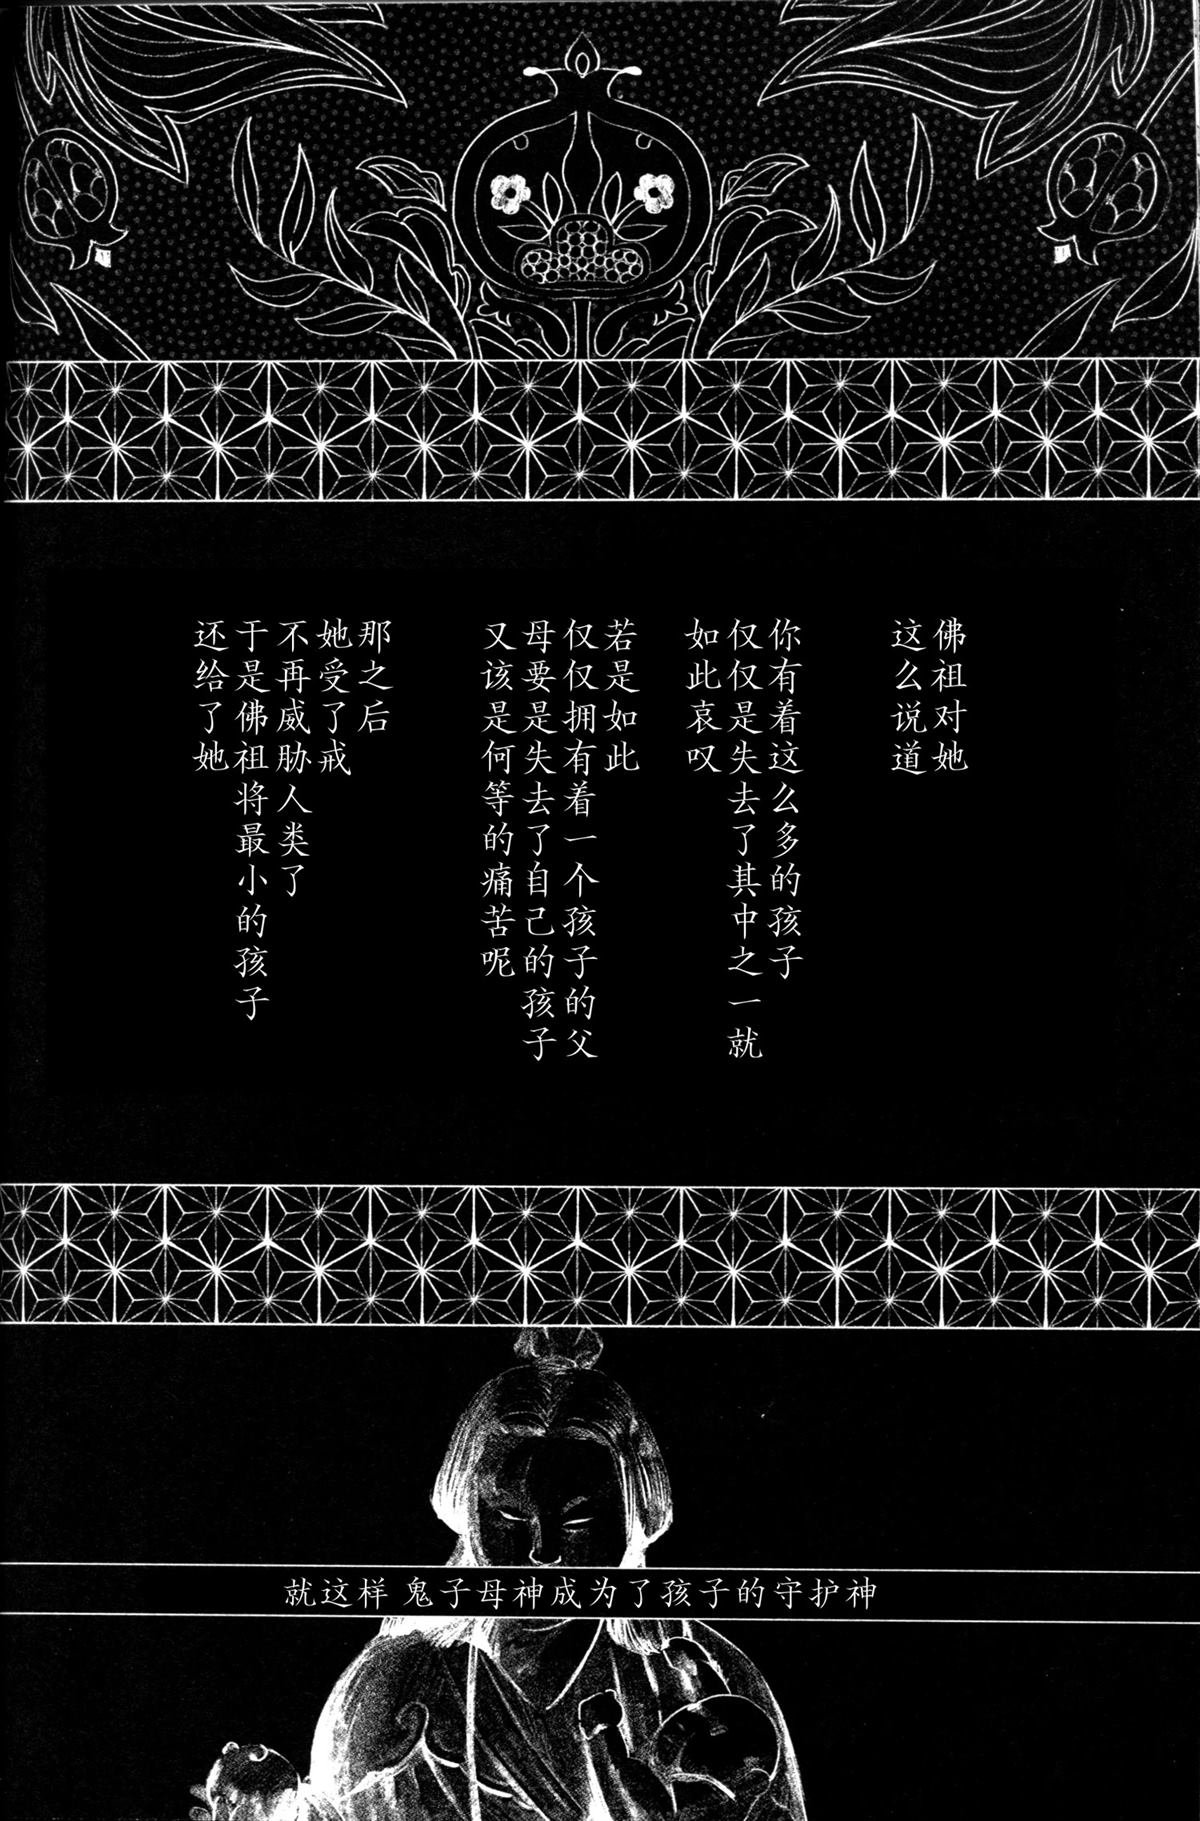 佛祖对她
这么说道
你有着这么多的孩子
仅仅是失去了其中之一就
如此哀叹
若是如此
仅仅拥有着一个孩子的父
母要是失去了自己的孩子
又该是何等的痛苦呢
那之后
她受了戒
不再威胁人类了
于是佛祖将最小的孩子
还给了她
就这样 鬼子母神成为了孩子的守护神